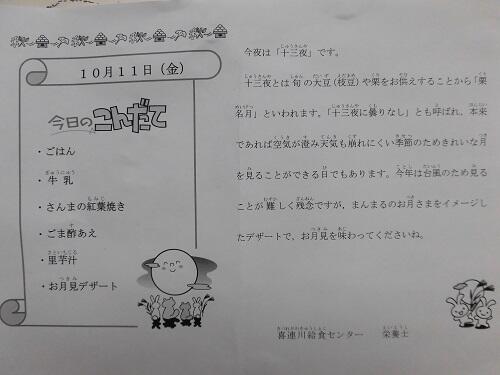 10月11日(金)
今日のこんだて
・ごはん
・牛乳
・さんまの紅葉焼き
・ごま酢あえ
・里芋汁
・お月見デザート
今夜は「十三夜」です。
十三夜とは旬の大豆(枝豆)や栗をお供えすることから「栗
名月」といわれます。「十三夜に曇りなし」とも呼ばれ、本来
であれば空気が澄み天気も崩れにくい季節のためきれいな月
を見ることができる日でもあります。今年は台風のため見る
ことが難しく残念ですが、まんまるのお月さまをイメージし
たデザートで、お月見を味わってくださいね。
喜連川給食センター　栄養士